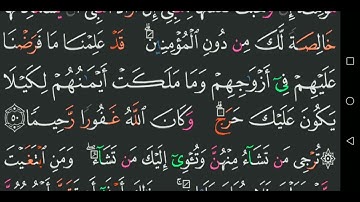 خَالِصَةً لَّكَ مِن دُونِ ٱلْمُؤْمِنِينَ ۗ قَدْ عَلِمْنَا مَا فَرَضْنَا
عَلَيْهِمْ فِىٓ أَزْوَٰجِهِمْ وَمَا مَلَكَتْ أَيْمَٰنُهُمْ لِكَيْلَا
يَكُونَ عَلَيْكَ حَرَجٌ ۗ وَكَانَ ٱللَّهُ غَفُورًا رَّحِيمًا ٥٠
۞ تُرْجِى مَن تَشَآءُ مِنْهُنَّ وَتُـْٔوِىٓ إِلَيْكَ مَن تَشَآءُ ۖ وَمَنِ ٱبْتَغَيْتَ